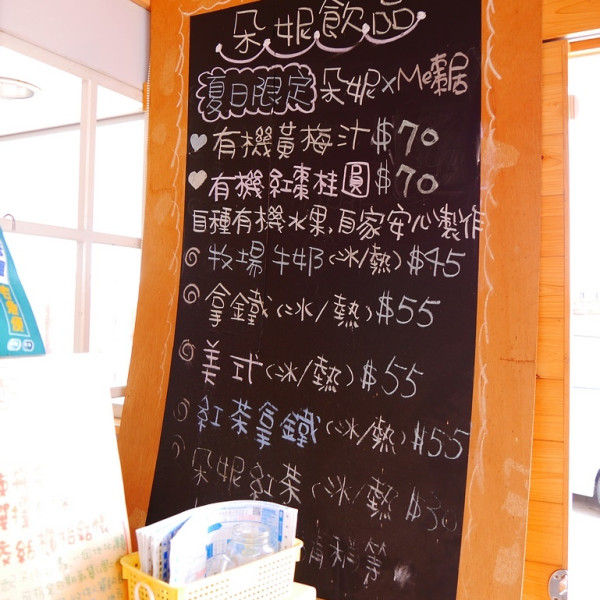 朵妮飲品
夏日限定 朵妮×Me棗居
有機黃梅汁 $70
有機紅棗桂圓 $70
自種有機水果,自家安心製作
牧場牛奶(冰/熱) $45
拿鐵(冰/熱) $55
美式(冰/熱) $55
紅茶拿鐵(冰/熱) $55
朵妮紅茶(冰/熱) $30